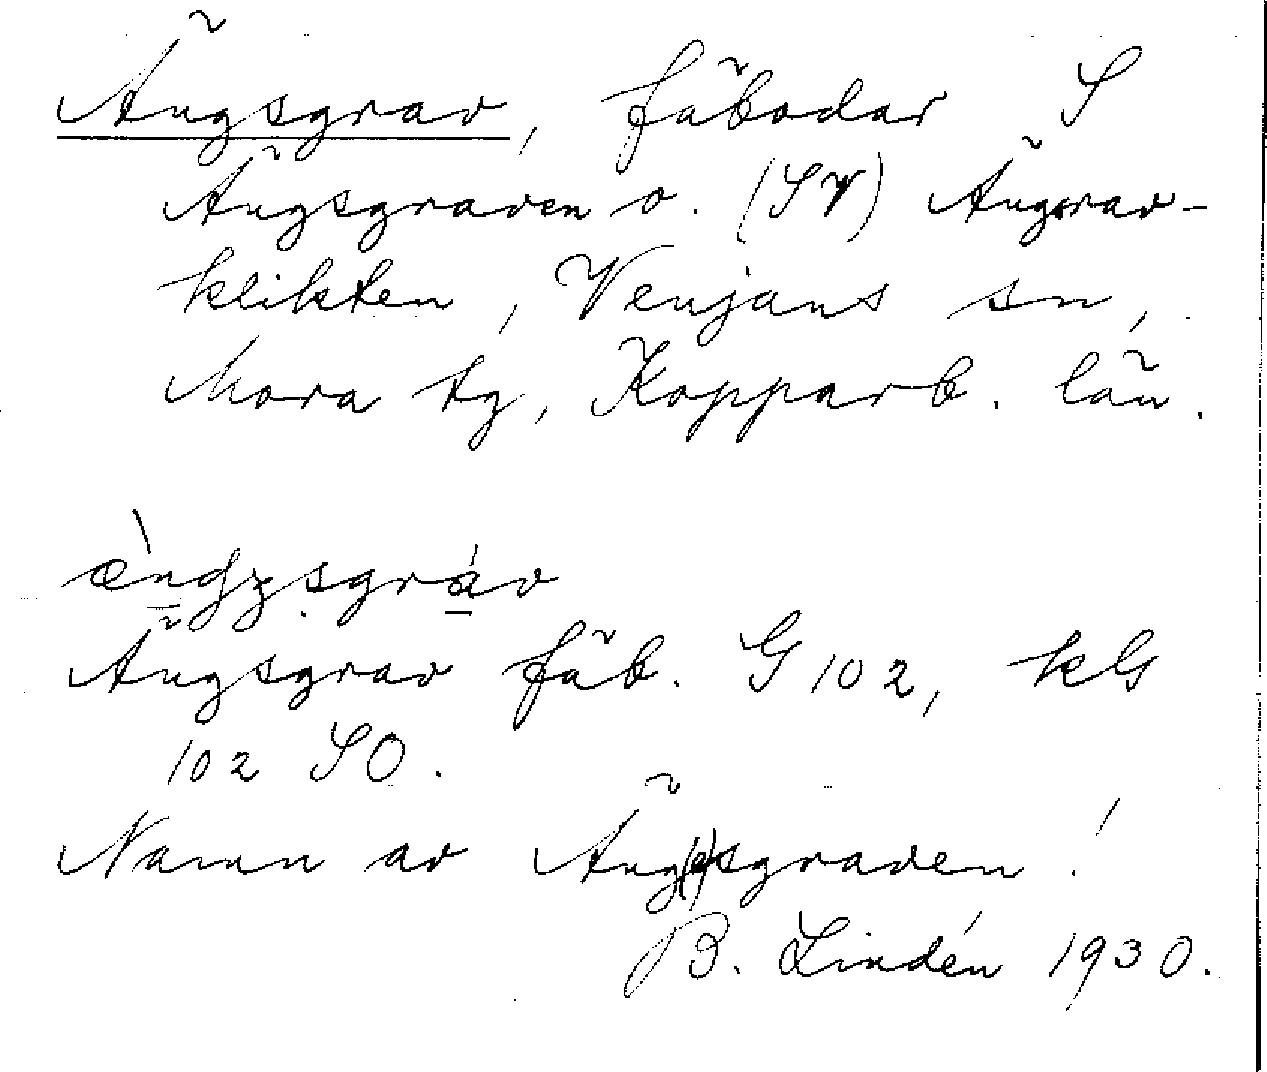 Ängsgrav, fäbodar S
Ängsgraven o. (SV) Ängsrav-
klikten, Venjans sn,
Mora tg, Kopparb. län.
Ängsgrav fäb. G 102, kG
102 SO.
Namn av Äng(e)sgraven!
B. Lindén 1930.